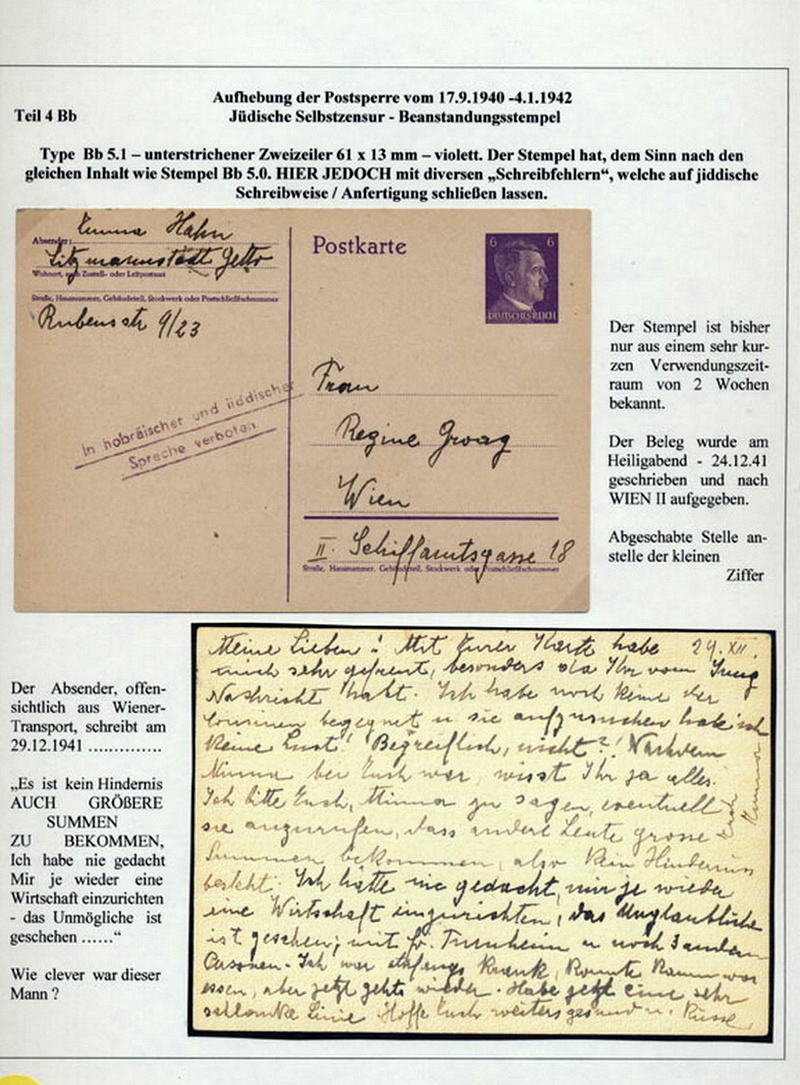 Aufhebung der Postsperre vom 17.9.1940 -4.1.1942
Teil 4 Bb
Jüdische Selbstzensur - Beanstandungsstempel
Type Bb 5.1 – unterstrichener Zweizeiler 61 x 13 mm – violett. Der Stempel hat, dem Sinn nach den
gleichen Inhalt wie Stempel Bb 5.0. HIER JEDOCH mit diversen „Schreibfehlern“, welche auf jiddische
Schreibweise / Anfertigung schließen lassen.
Emma Hahn
Absender:
Litzmannstadt Getto
Wohnort, auch Zustell- oder Leitpostamt
Straße, Hausnummer, Gebäudeteil, Stockwerk oder Postschließfachnummer
Rubensstr 9/23
In hobräischer und iiddischer
Sprache verboten
Postkarte
6 6
DEUTSCHES REICH
Frau
Regine Groag
Wien
II. Schiffamtsgasse 18
Straße, Hausnummer, Gebäudeteil, Stockwerk oder Postschließfachnummer
Der Stempel ist bisher
nur aus einem sehr kur-
zen Verwendungszeit-
raum von 2 Wochen
bekannt.
Der Beleg wurde am
Heiligabend - 24.12.41
geschrieben und nach
WIEN II aufgegeben.
Abgeschabte Stelle an-
stelle der kleinen
Ziffer
Der Absender, offen-
sichtlich aus Wiener-
Transport, schreibt am
29.12.1941 ..............
„Es ist kein Hindernis
AUCH GRÖßERE
SUMMEN
ZU BEKOMMEN,
Ich habe nie gedacht
Mir je wieder eine
Wirtschaft einzurichten
- das Unmögliche ist
geschehen ......“
Wie clever war dieser
Mann ?
Meine Lieben! Mit Eurer Karte habe 29. XII.
mich sehr gefreut, besonders da Ihr vom Jung
Nachricht habt. Ich habe noch keine der
Cousinen begegnet u sie aufzusuchen hab ich
keine Lust! Begreiflich, nicht?! Nachdem
Minna bei Euch war, wisst Ihr ja alles.
Ich bitte Euch, Minna zu sagen, eventuell
sie anzurufen, dass andere Leute grosse
Summen bekommen, also kein Hindernis
besteht. Ich hätte nie gedacht, mir je wieder
eine Wirtschaft einzurichten, das Unglaubliche
ist geschehen, mit Fr. u noch 3 andern
Personen. Ich war anfangs krank, konnte kaum was
essen, aber jetzt gehts wieder. Habe jetzt eine sehr
schlanke Linie Hoffe Euch weiters gesund u. Küsse
Emma